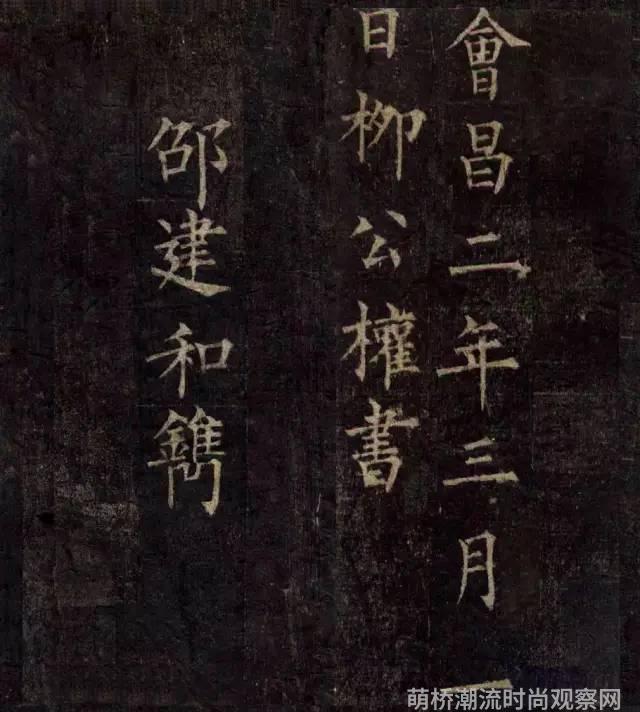 會昌二年三月一
日柳公權書
邵建和鐫
萌桥潮流时尚观察网